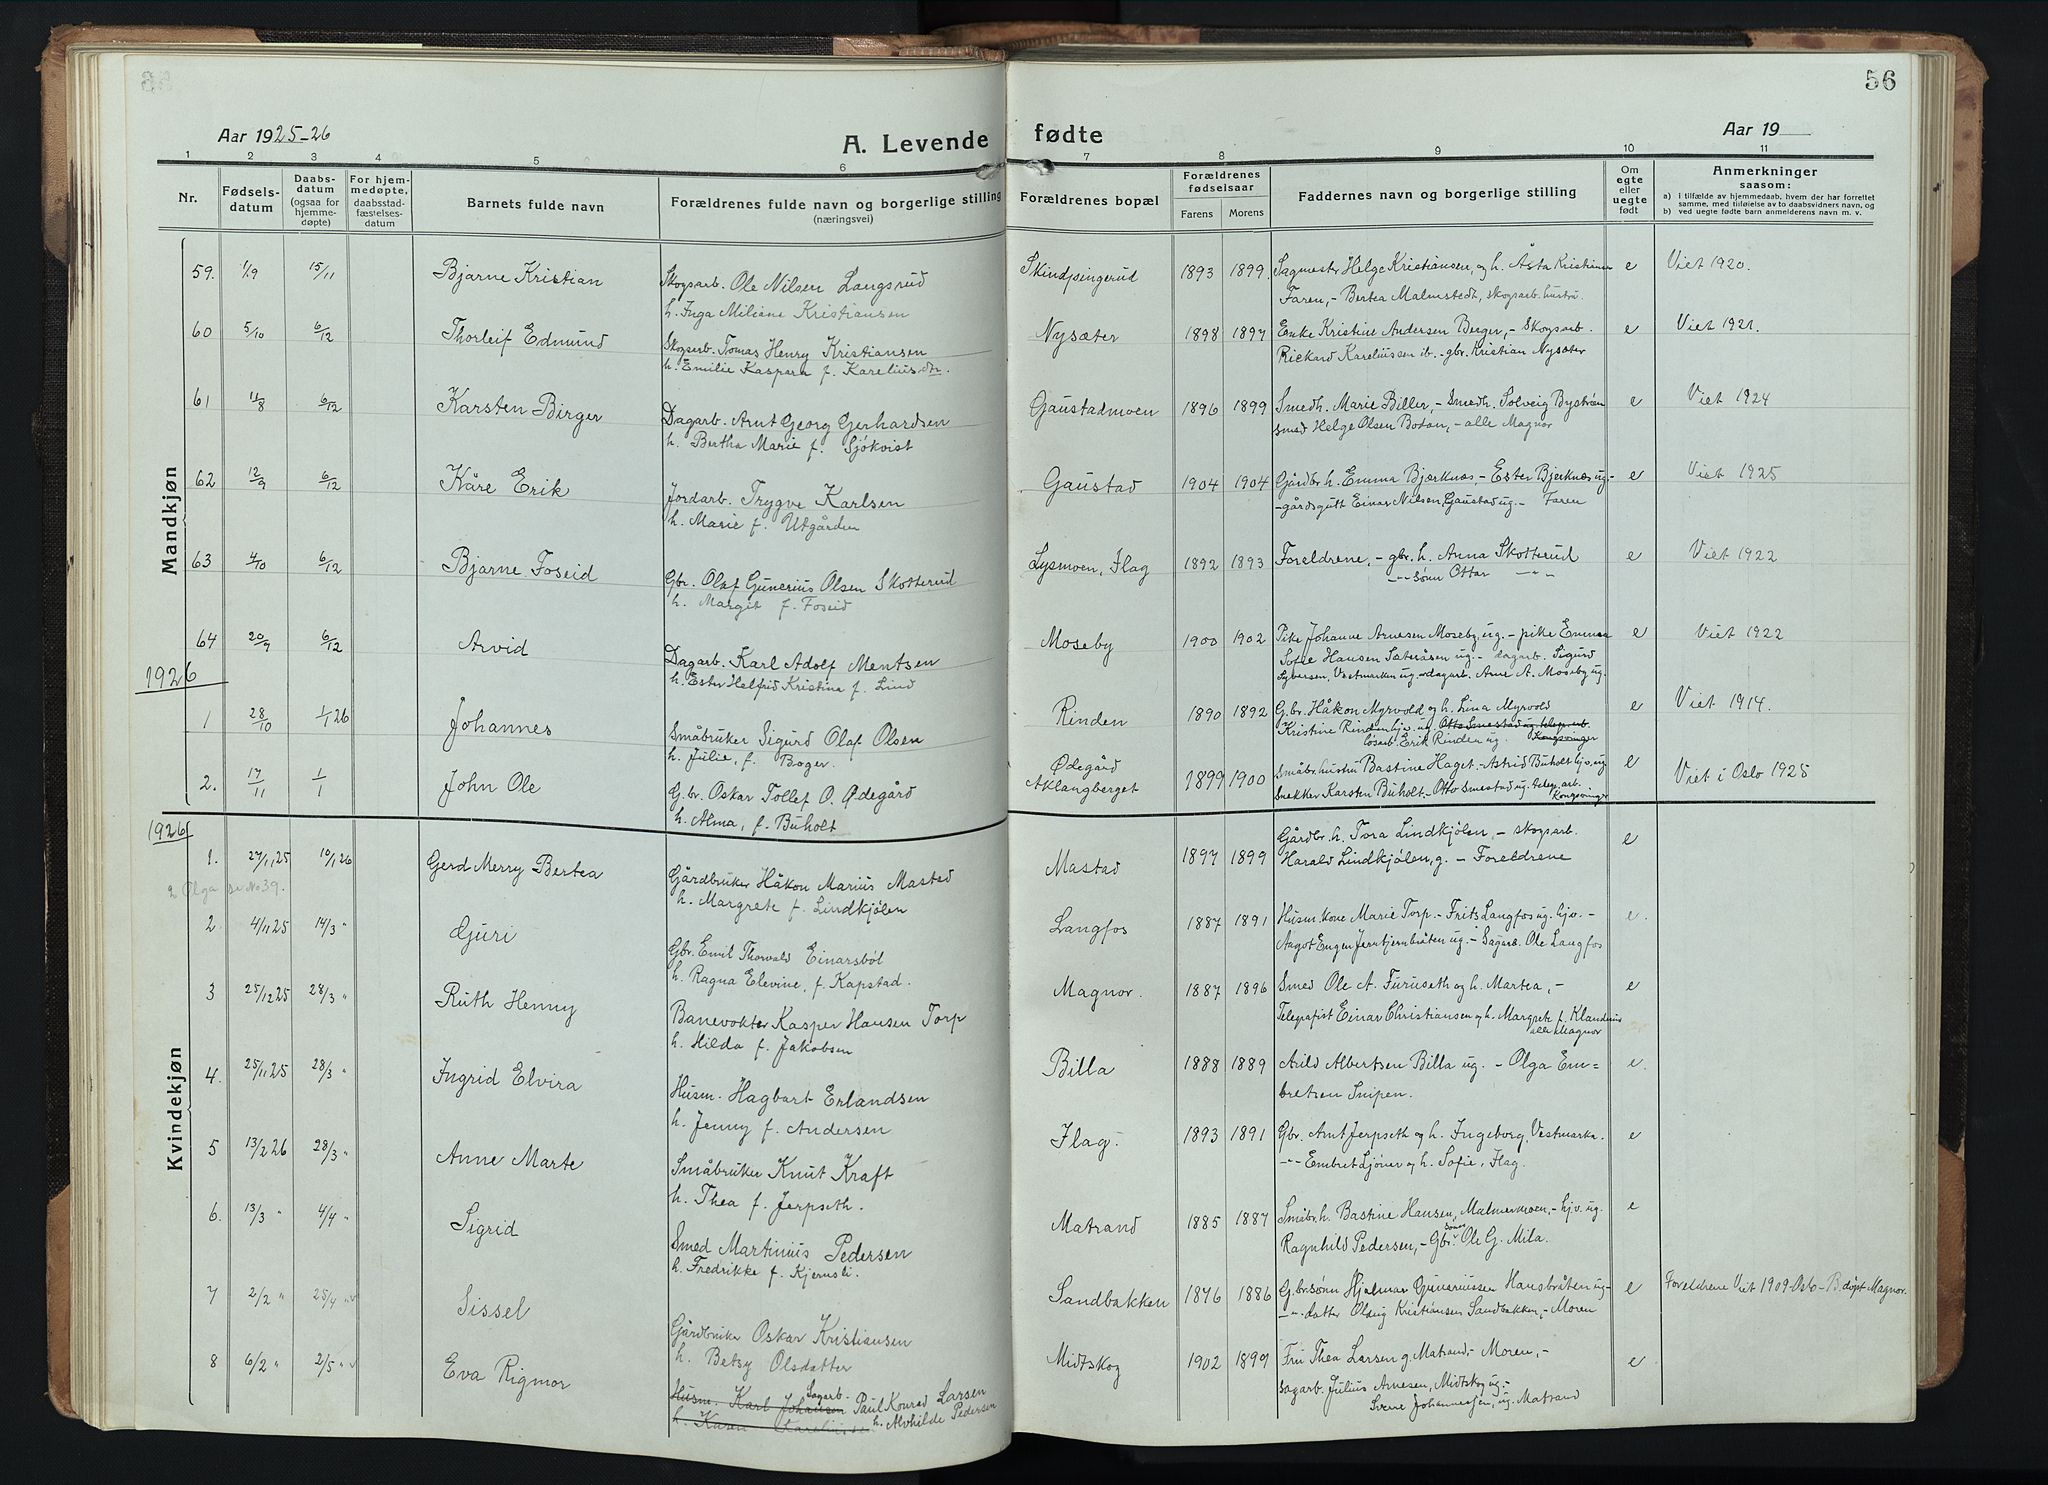 56
Aar 1925-26
A. Levende fødte
Aar 19
1 2 3 4 5 6 7 8 9 10 11
Nr.
Fødselsdatum
Daabsdatum (ogsaa for hjemmedøpte)
For hjemmedøpte, daabsstadfæstelsesdatum
Barnets fulde navn
Forældrenes fulde navn og borgerlige stilling
(næringsvei)
Forældrenes bopæl
Forældrenes fødselsaar
Farens Morens
Faddernes navn og borgerlige stilling
Om egte eller uegte født
Anmerkninger
saasom:
a) I tilfælde av hjemmedaab, hvem der har forrettet samme, med tilføielse av to daabsvidners navn, og
b) ved uegte fødte barn anmelderens navn m. v.
Mandkjøn
59. 1/9 15/11 Bjarne Kristian Skogsarb. Ole Nilsen Langsrud Skindpungerud 1893 1899. Sagmester Helge Kristiansen, og h. Åsta Kristiansen e Viet 1920.
h. Inga Miliane Kristiansen Faren, - Bertea Malmstedt, skogsarb. hustru.
60 5/10 6/12 Thorleif Edmund Skogsarb. Tomas Henry Kristiansen Nysæter 1898 1897 Enke Kristine Andersen Berger, - Skogsarb. e Viet 1921.
h. Emilie Kaspara f. Kareliusdtr. Rickard Kareliussen ib. - gbr. Kristian Nysæter
61 11/8 6/12 Karsten Birger Dagarb. Arnt Georg Gerhardsen Gaustadmoen 1896 1899 Smedh. Marie Biller, - Smedh. Solveig Byström e Viet 1924
h. Bertha Marie f. Sjökvist smed Helge Olsen Botan, - alle Magnor
62 12/9 6/12 Kåre Erik Jordarb. Trygve Karlsen Gaustad 1904 1904 Gårdbr. h. Emma Bjerknæs - Ester Bjerknæs ug. e Viet 1925
h. Marie f. Utgården - gårdsgutt Einar Nilsen, Gaustad ug. - Faren
63 4/10 6/12 Bjarne Foseid Gbr. Olaf Gunerius Olsen Skotterud Lysmoen, Flag 1892 1893 Foreldrene, - gbr. h. Anna Skotterud e Viet 1922
h. Margit f. Foseid -"- sønn Ottar -"-
64 20/9 6/12 Arvid Dagarb. Karl Adolf Mentsen Moseby 1900 1902 Pike Johanne Arnesen Moseby, ug. - pike Emma e Viet 1922
h. Ester Helfrid Kristina f. Lind Sofie Hansen Sæteråsen ug. - dagarb. Sigurd
Syversen, Vestmarken ug. - dagarb. Arne A. Moseby ug.
1926
1 28/10 1/1 26 Johannes Småbruker Sigurd Olaf Olsen Rinden 1890 1892 G.br. Håkon Myrvold og h. Lina Myrvold e Viet 1914.
h. Julie, f. Boger. Kristine Rinden hjv. ug. Otto Smestad ug. telegr. arb.
løsarb. Erik Rinden ug. Kongsvinger
2. 17/11 1/1 John Ole G.br. Oskar Tollef O. Ødegård Ødegård Aklangberget 1899 1900 Småbr. hustru Bastine Haget. - Astrid Buholt hjv. ug e Viet i Oslo 1925
h. Alma, f. Buholt Snekker Karsten Buholt. - Otto Smestad ug. telegr. arb. Kongsvinger
1926
Kvindekjøn
1. 27/11 25 10/1 26 Gerd Merry Bertea Gårdbruker Håkon Marius Mastad Mastad 1897 1899 Gårdbr. h. Tora Lindkjølen, - skogsarb. e
h. Margrete f. Lindkjølen Harald Lindkjølen, g. - Foreldrene
2 Olga se No 39.
2 4/11 25 14/3 " Guri Gbr. Emil Thorvald Einarsbøl Langfos 1887 1891 Husm. kone Marie Torp. - Frits Langfos ug. hjv. - e.
h. Ragna Elevine, f. Kapstad. Aagot Engen Jerntjernbråten ug. - Sagarb. Ole Langfos
3 25/12 25 28/3 " Ruth Henny Banevokter Kasper Hansen Torp Magnor. 1887 1896 Smed Ole A. Furuseth og h. Martea, - e
h. Hilda f. Jakobsen Telegrafist Einar Christiansen og h. Margrete f. Klanderud
alle Magnor
4. 25/11 25 28/3 " Ingrid Elvira Husm. Hagbart Erlandsen Billa 1888 1889 Arild Albertsen Billa ug. - Olga Em= e.
h. Jenny f. Andersen bretsen Snipen.
5 13/2 26 28/3 " Anne Marte Småbruker Knut Kraft Flag - 1893 1891 Gbr. Arnt Jerpseth og h. Ingeborg, Vestmarka. e
h. Thea f. Jerpseth. -"- Embret Ljøner og h. Sofie, Flag.
6. 13/3 " 4/4 " Sigrid Smed Martinius Pedersen Matrand 1885 1887 Småbr. h. Bastine Hansen, Malmerkmoen, - hjv. ug. e
h. Fredrikke f. Kjernsli. Ragnhild Pedersen, - Gbr. sønn Ole G. Mila.
7 2/2 " 25/4 " Sissel Gårdbruker Oskar Kristiansen Sandbakken 1876 1886 G.br. sønn Hjalmar Gunariussen Hansbråten ug - e Foreldrene Viet 1909 Oslo - B. døpt Magnor.
h. Betsy Olsdatter -"- datter Olaug Kristiansen Sandbakken, - Moren
8 6/2 " 2/5 " Eva Rigmor Husm. Karl Johansen Sagarb. Paul Konrad Larsen Midtskog 1902 1899 Fru Thea Larsen g. Matrand, - Moren, - e
h. Karen Kareliussen h. Alvhilde Pedersen sagarb. Julius Arnesen, Midtskog ug. -
Sverre Johannessen, ug. Matrand